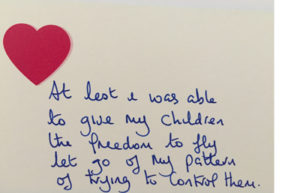 At lest i was able
to give my children
the freedom to fly
let go of my pattern
of trying to control them.